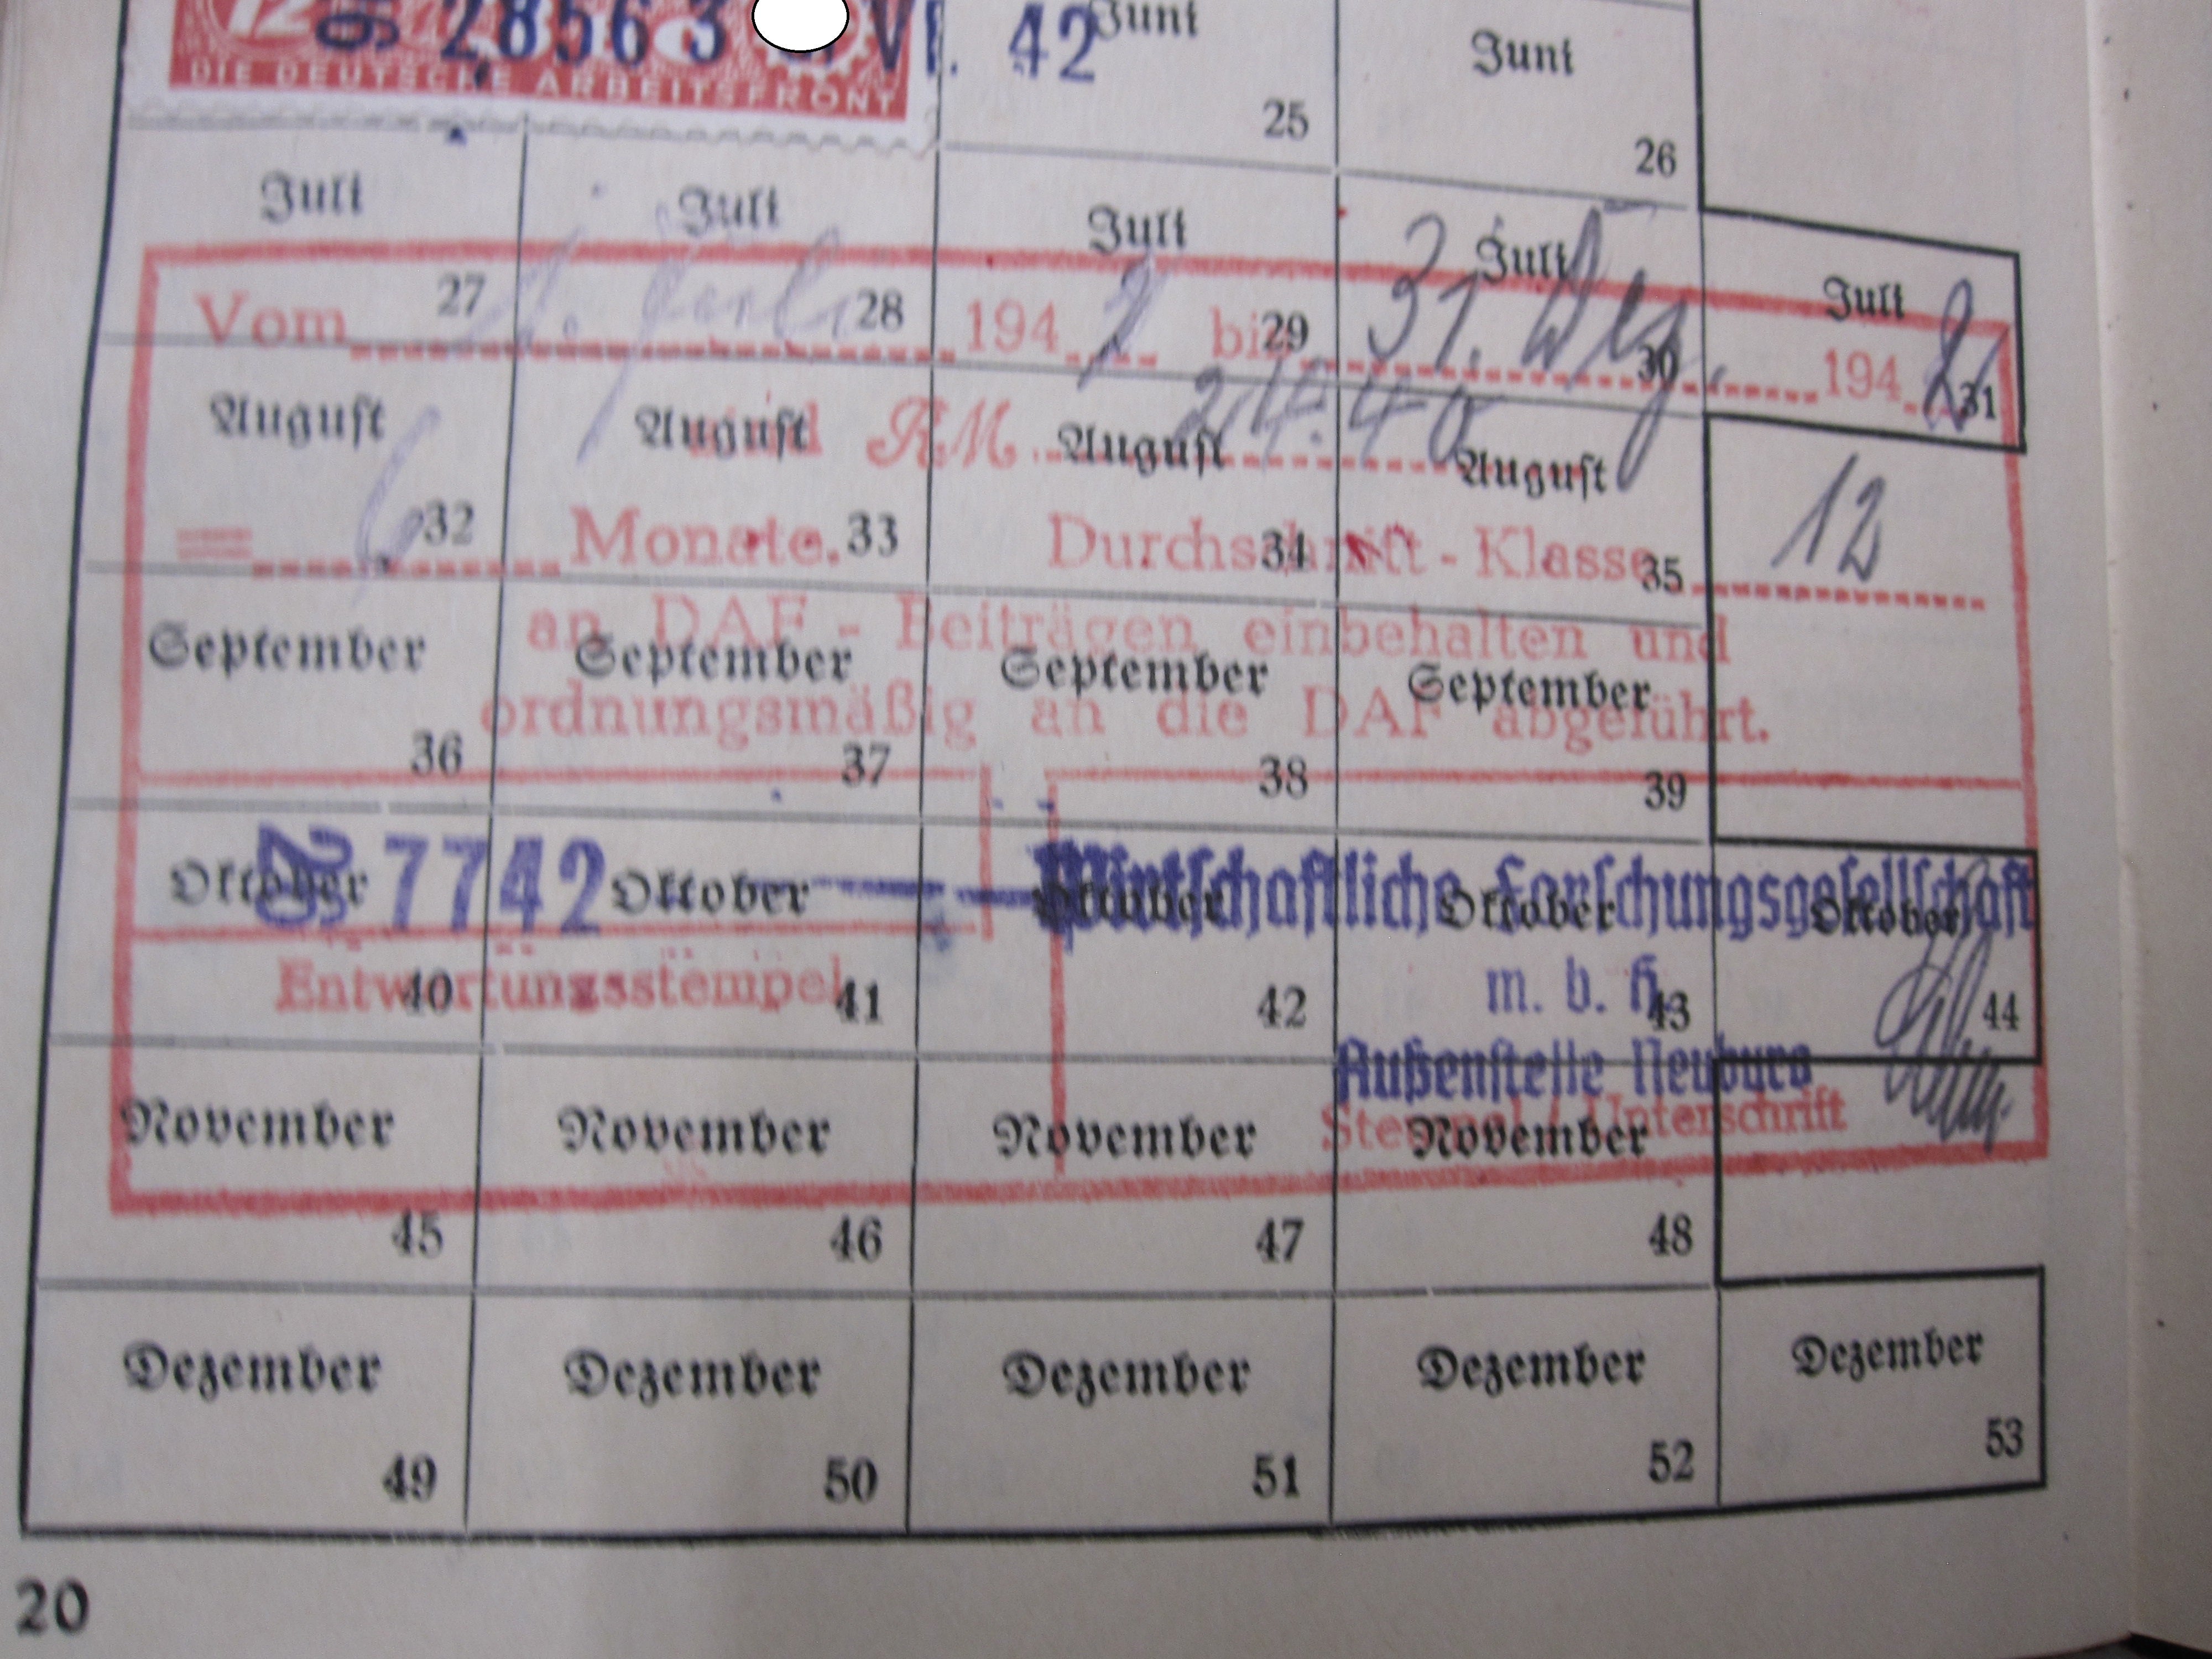 12
28563 VI. 42
DIE DEUTSCHE ARBEITSFRONT
Juni 25
Juni 26
Juli 27
Juli 28
Juli 29
Juli 30
Juli 31
Vom 1. Juli 1942 bis 31. Dez. 1942
sind RM 24.40
= 6 Monate. Durchschnitt-Klasse 12
an DAF-Beiträgen einbehalten und
ordnungsmäßig an die DAF abgeführt.
August 32
August 33
August 34
August 35
September 36
September 37
September 38
September 39
7742
Wirtschaftliche Forschungsgesellschaft
m. b. H.
Außenstelle Neuburg
Entwertungsstempel
Stempel / Unterschrift
Oktober 40
Oktober 41
Oktober 42
Oktober 43
Oktober 44
November 45
November 46
November 47
November 48
Dezember 49
Dezember 50
Dezember 51
Dezember 52
Dezember 53
20